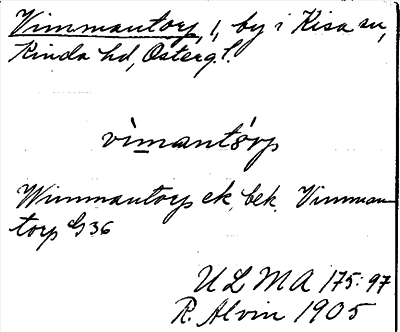 Vimmantorp, l, by i Kisa sn,
Kinda hd, Östergl.
vìmantórp
Wimmantorp ek, bek. Vimman
torp G36
ULMA 175:97
R. Alvin 1905